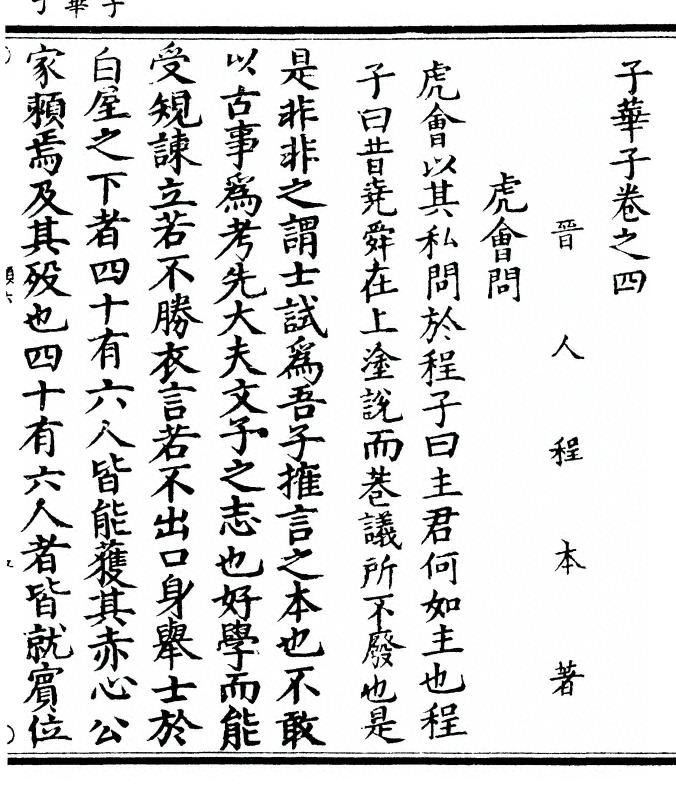 子華子卷之四
晉人程本著
虎會問
虎會以其私問於程子曰主君何如主也程
子曰昔堯舜在上塗說而巷議所不廢也是
是非非之謂士試爲吾子搉言之本也不敢
以古事爲考先大夫文子之志也好學而能
受規諫立若不勝衣言若不出口身舉士於
白屋之下者四十有六人皆能獲其赤心公
家賴焉及其歿也四十有六人者皆就賓位